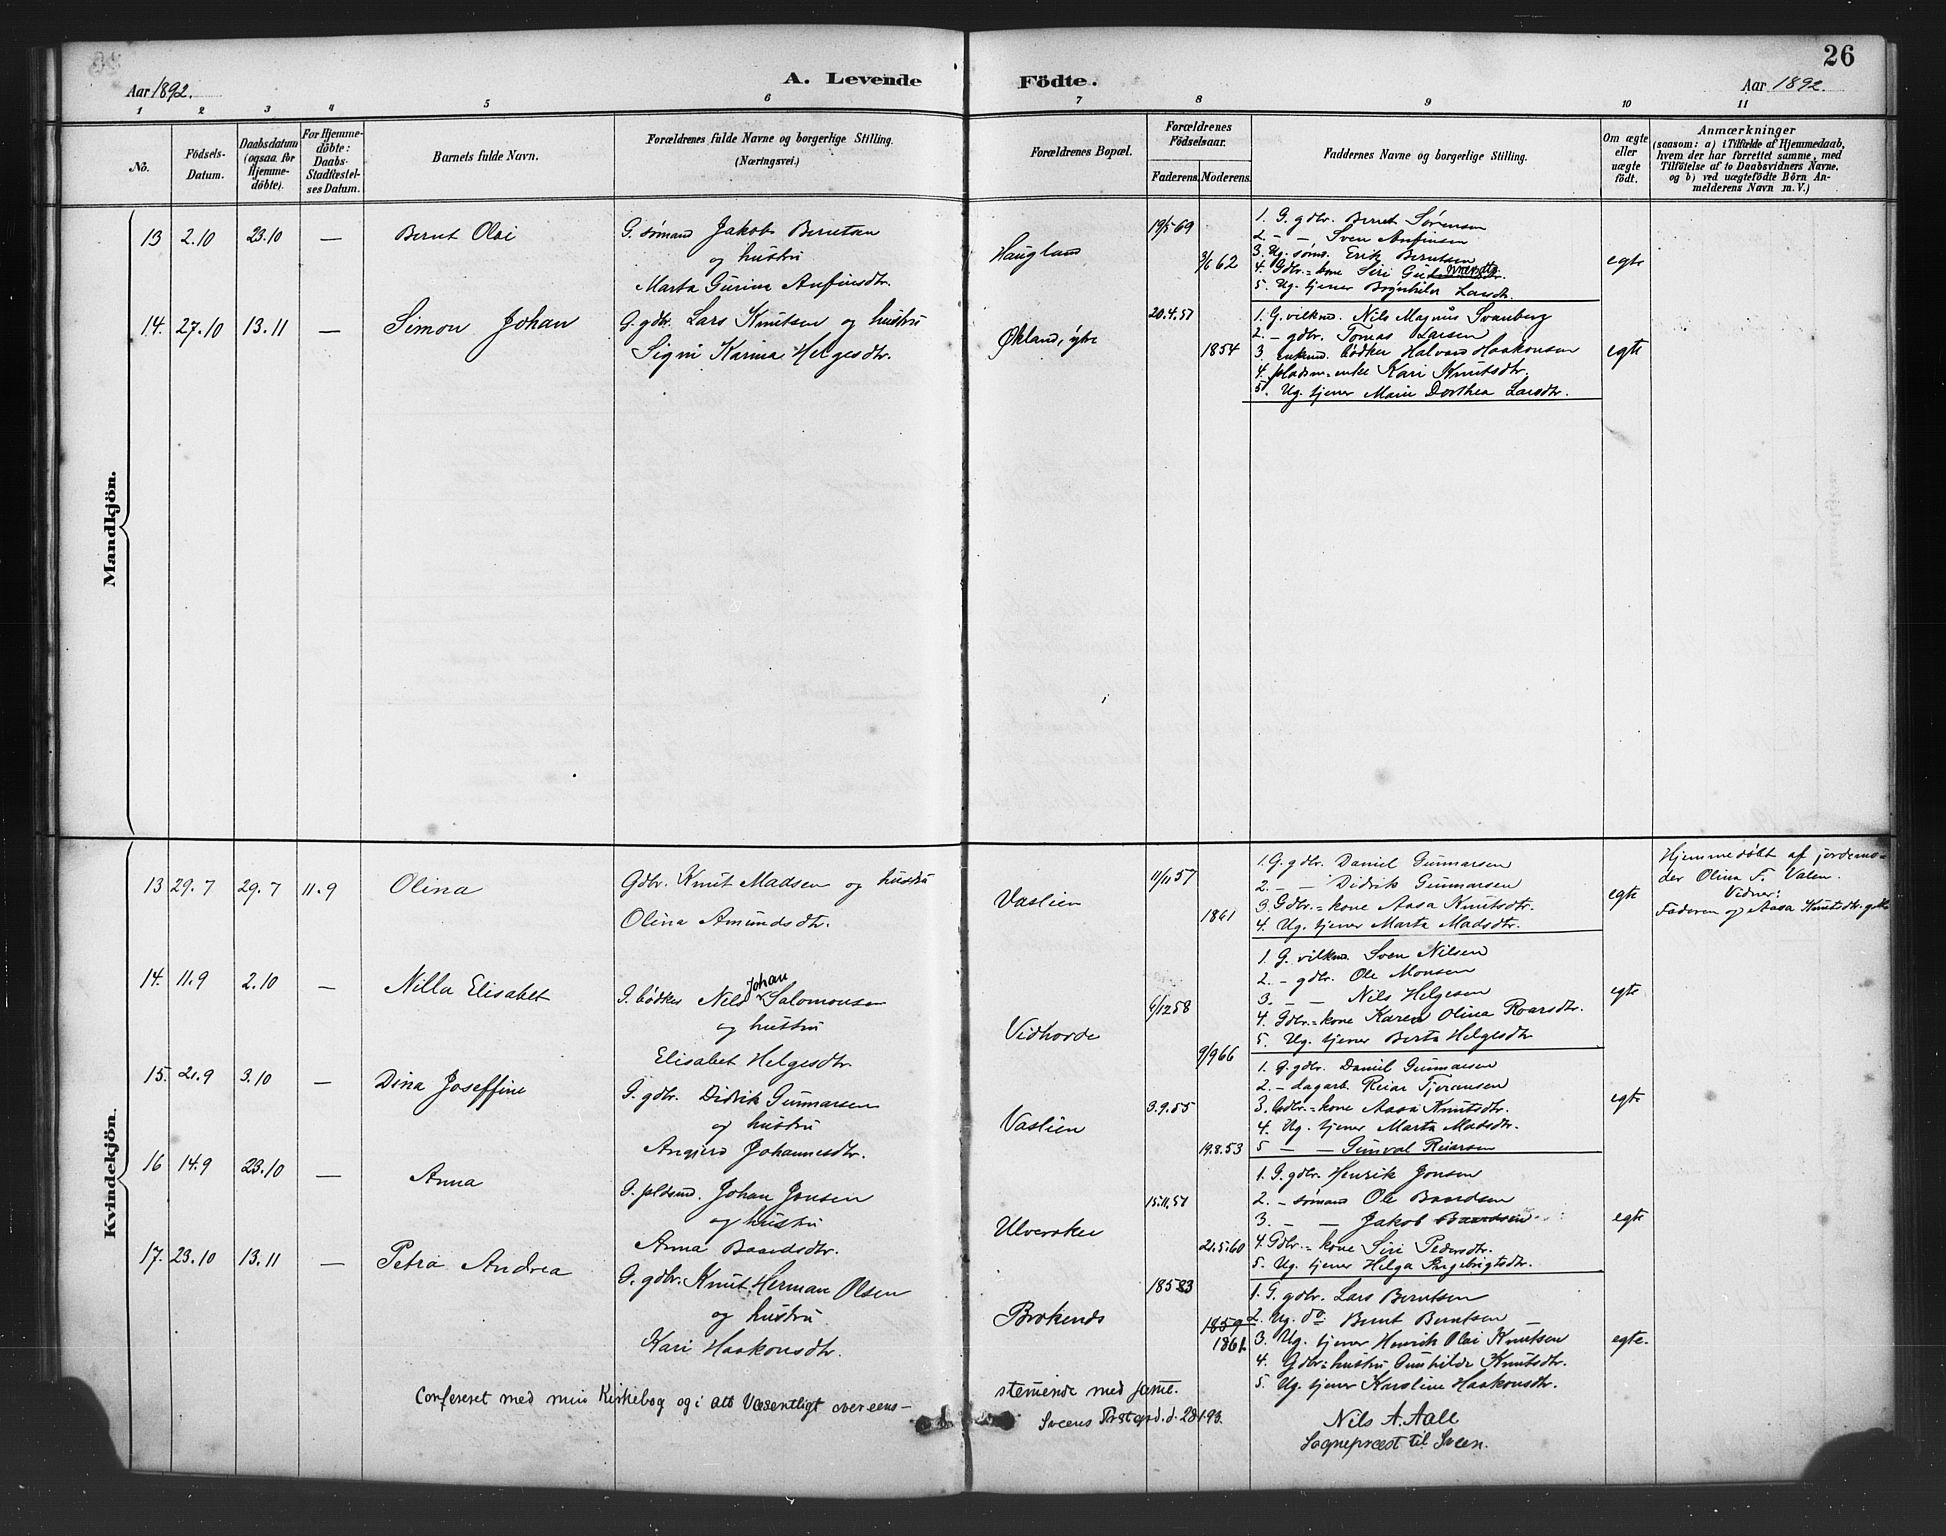 26
Aar 1892.
A. Levende Födte.
Aar 1892.
1 2 3 4 5 6 7 8 9 10 11
No.
Födsels-Datum.
Daabsdatum (ogsaa for Hjemmedöbte).
For Hjemmedöbte: Daabs-Stadfæstelses Datum.
Barnets fulde Navn.
Forældrenes fulde Navne og borgerlige Stilling.
(Næringsvei.)
Forældrenes Bopæl.
Forældrenes Födselsaar.
Faderens. Moderens.
Faddernes Navne og borgerlige Stilling.
Om ægte eller uægte födt.
Anmærkninger
(saasom: a) i Tilfælde af Hjemmedaab,
hvem der har forrettet samme, med
Tilföielse af to Daabsvidners Navne,
og b) ved uægtefödte Börn An-
melderens Navn m. V.)
Mandkjön.
13 2.10 23.10 — Bernt Olai
G. sömand Jakob Berntsen
og hustru
Marta Gurine Anfinsdtr.
Haugland
19/5 69
3/6 62
1. G. gdbr. Bernt Sørensen
2. — — Sven Anfinsen
3. Ug. søm. Erik Berntsen
4. Gdbr.=kone Siri
5. Ug. tjener Brynhilda Larsdtr.
egte
14. 27.10 13.11 — Simon Johan
G. gdbr. Lars Knutsen og hustru
Signi Karina Helgesdtr.
Økland, ytre
20.4.51
1854
1. G. vilkmd. Nils Magnus Svanberg
2. — gdbr. Tomas Larsen
3. enkmd. bødker Halvard Haakonsen
4. pladsm=enke Kari Knutsdtr.
5. Ug. tjener Marie Dorthea Larsdtr.
egte
Kvindekjön.
13 29.7 29.7 11.9 Olina
Gdbr. Knut Madsen og hustru
Olina Amundsdtr.
Vaslien
11/11 57
1861
1. G. gdbr. Daniel Gunnarsen
2. — — Didrik Gunnarsen
3. Gdbr.=kone Aasa Knutsdtr.
4. Ug. tjener Marta Madsdtr.
egte
Hjemmedøbt af jordemo-
der Olina F. Valen.
Vidner:
Faderen og Aasa Knutsdtr.
14. 11.9 2.10 — Nilla Elisabet
G. bødker Nils Johan Salomonsen
og hustru
Elisabet Helgesdtr.
Vidhovde
6/12 58
9/9 66
1. G. vilkmd Sven Nilsen
2. — gdbr. Ole Monsen
3. — — Nils Helgesen
4. Gdbr.=kone Karen Olina Roarsdtr.
5. Ug. tjener Berta Helgesdtr
egte
15. 21.9 3.10 — Dina Joseffine
G. gdbr. Didrik Gunnarsen
og hustru
Angjerd Johannesdtr.
Vaslien
3.9.55
19.8.53
1. G. gdbr. Daniel Gunnarsen
2. — dagarb. Reiar Tjeransen
3. Gdbr.=kone Aasa Knutsdtr.
4. Ug. tjener Marta Madsdtr.
5 — — Gunvol Reiarsen
egte
16 14.9 23.10 — Anna
G. pldsmd. Johan Jonsen
og hustru
Anna Baardsdtr.
Ulversker
15.11.51
21.5.60
1. G. gdbr. Henrik Jonsen
2. — sømand Ole Baardsen
3. — — Jakob Baardsen
4. Gdbr.=kone Siri Pedersdtr.
5. Ug. tjener Helga Ingebrigtsdtr.
egte
17. 23.10 13.11 — Petra Andrea
G. gdbr. Knut Herman Olsen
og hustru
Kari Haakonsdtr.
Brekends
1853
1859
1861.
1. G. gdbr. Lars Berntsen
2. Ug. do Bernt Berntsen
3. Ug. tjener Henrik Olai Knutsen
4. Gdbr=hustru Gunhilde Knutsdtr.
5. Ug. tjener Karoline Haakonsdtr.
egte.
Confereret med min Kirkebog og i alt Væsentligt overens-
stemende med samme.
Sveens Prstgrd. d. 28/1.93.
Nils A. Aall
Sogneprest til Sveen.